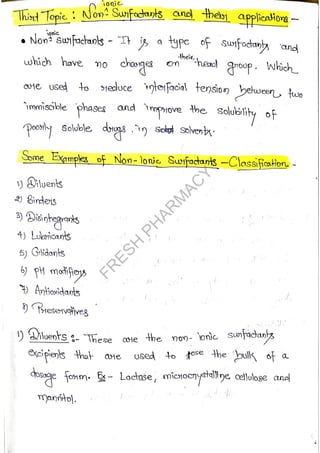 Third Topic : Non-ionic Surfactants and their applications -
• Non-ionic surfactants - It is a type of surfactants and
which have no charges on their head group. Which
are used to reduce interfacial tension between two
immiscible phases and improve the solubility of
poorly soluble drugs in solvents.
Some Examples of Non-ionic Surfactants - Classification -
1) Diluents
2) Binders
3) Disintegrants
4) Lubricants
5) Glidants
6) pH modifiers
7) Antioxidants
8) Preservatives
FRESH PHARMACY
1) Diluents :- These are the non-ionic surfactants
excipients that are used to rose the bulk of a
dosage form. Ex - Lactose, microcrystalline cellulose and
mannitol.